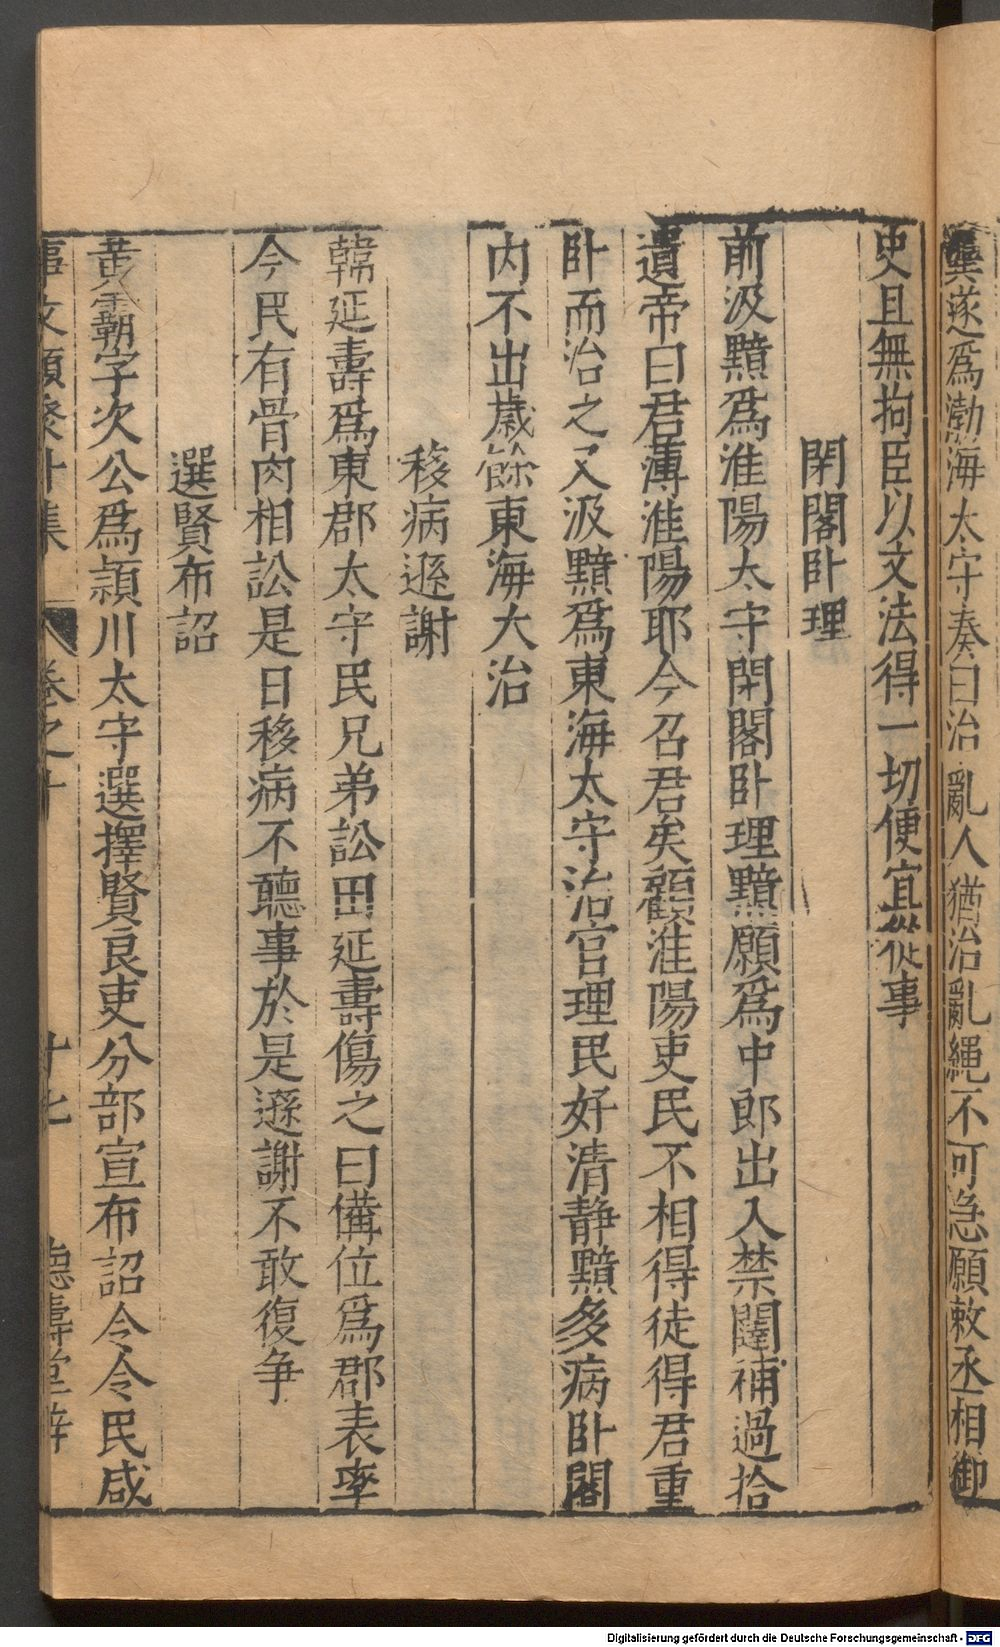 龔遂爲渤海太守奏曰治亂人猶治亂繩不可急願敕丞相御
史且無拘臣以文法得一切便宜從事
閉閣卧理
前汲黯爲淮陽太守閉閣卧理黯願爲中郎出入禁闥補過拾
遺帝曰君薄淮陽耶今召君矣顧淮陽吏民不相得徒得君重
卧而治之又汲黯爲東海太守治官理民好清静黯多病卧閣
内不出歳餘東海大治
移病遜謝
韓延壽爲東郡太守民兄弟訟田延壽傷之曰備位爲郡表率
今民有骨肉相訟是日移病不聽事於是遜謝不敢復争
選賢布詔
黄霸字次公爲頴川太守選擇賢良吏分部宣布詔令令民咸
事文類聚 集 卷之十 十七 德壽堂梓
Digitalisierung gefördert durch die Deutsche Forschungsgemeinschaft - DFG